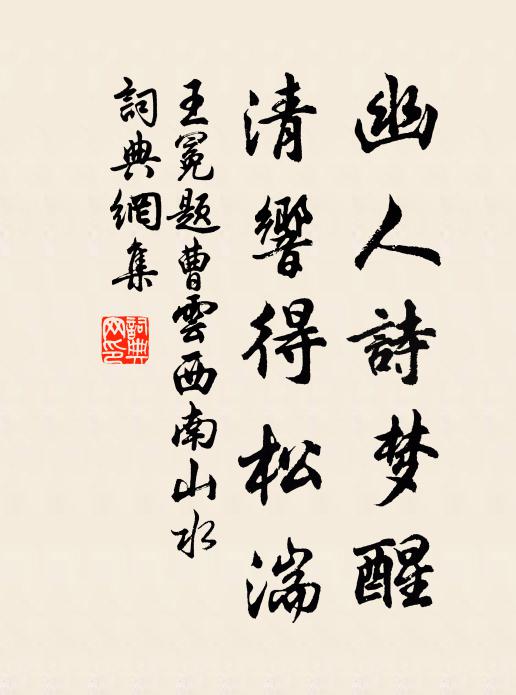 幽人詩梦醒
清響得松湍
王冕题曹雲西南山水
詞典網集
詞典網印